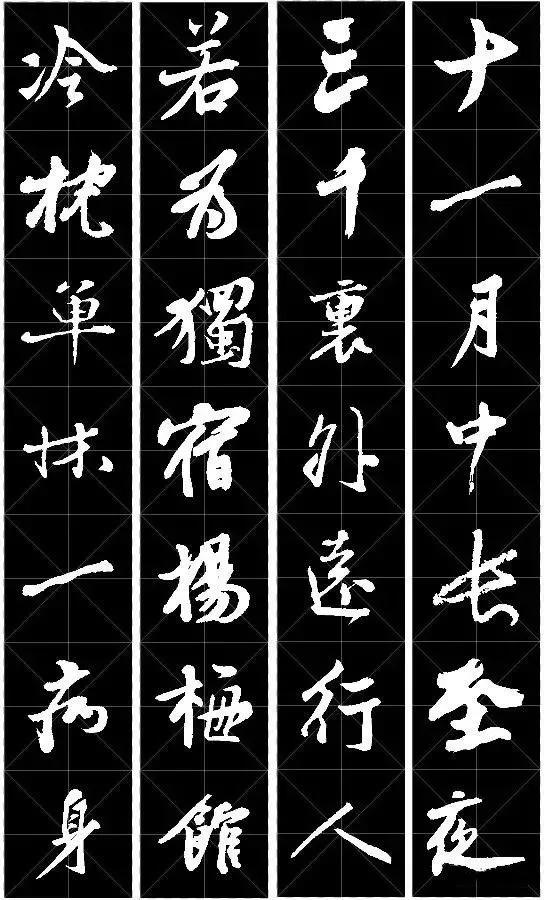 十一月中长至夜
三千裏外遠行人
若为獨宿楊梅館
冷枕单床一病身